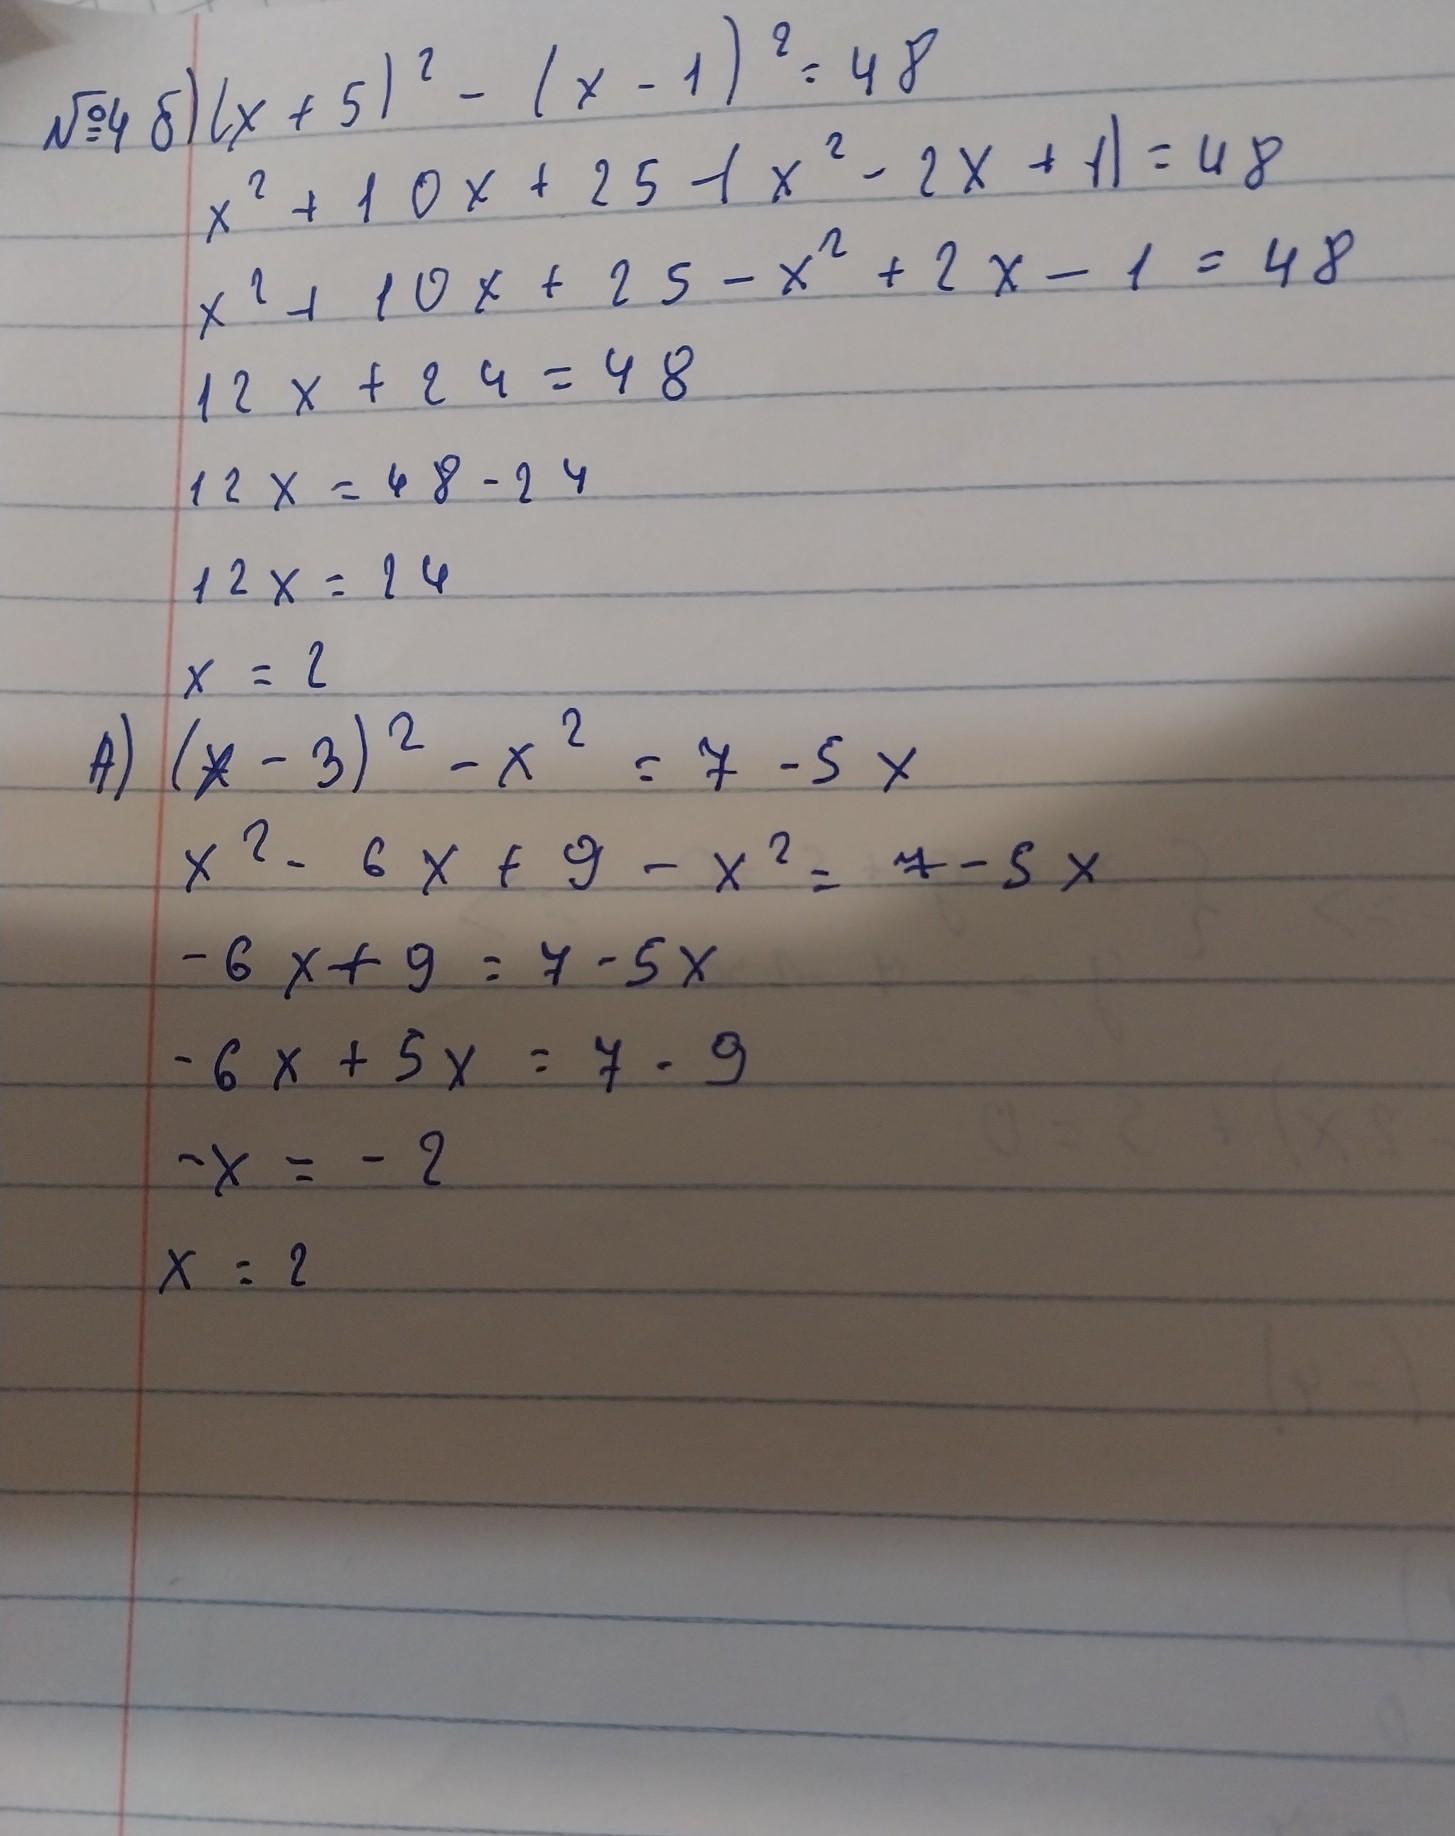 №4 б) (x + 5)² - (x - 1)² = 48
x² + 10x + 25 - (x² - 2x + 1) = 48
x² + 10x + 25 - x² + 2x - 1 = 48
12x + 24 = 48
12x = 48 - 24
12x = 24
x = 2
А) (x - 3)² - x² = 7 - 5x
x² - 6x + 9 - x² = 7 - 5x
-6x + 9 = 7 - 5x
-6x + 5x = 7 - 9
-x = -2
x = 2